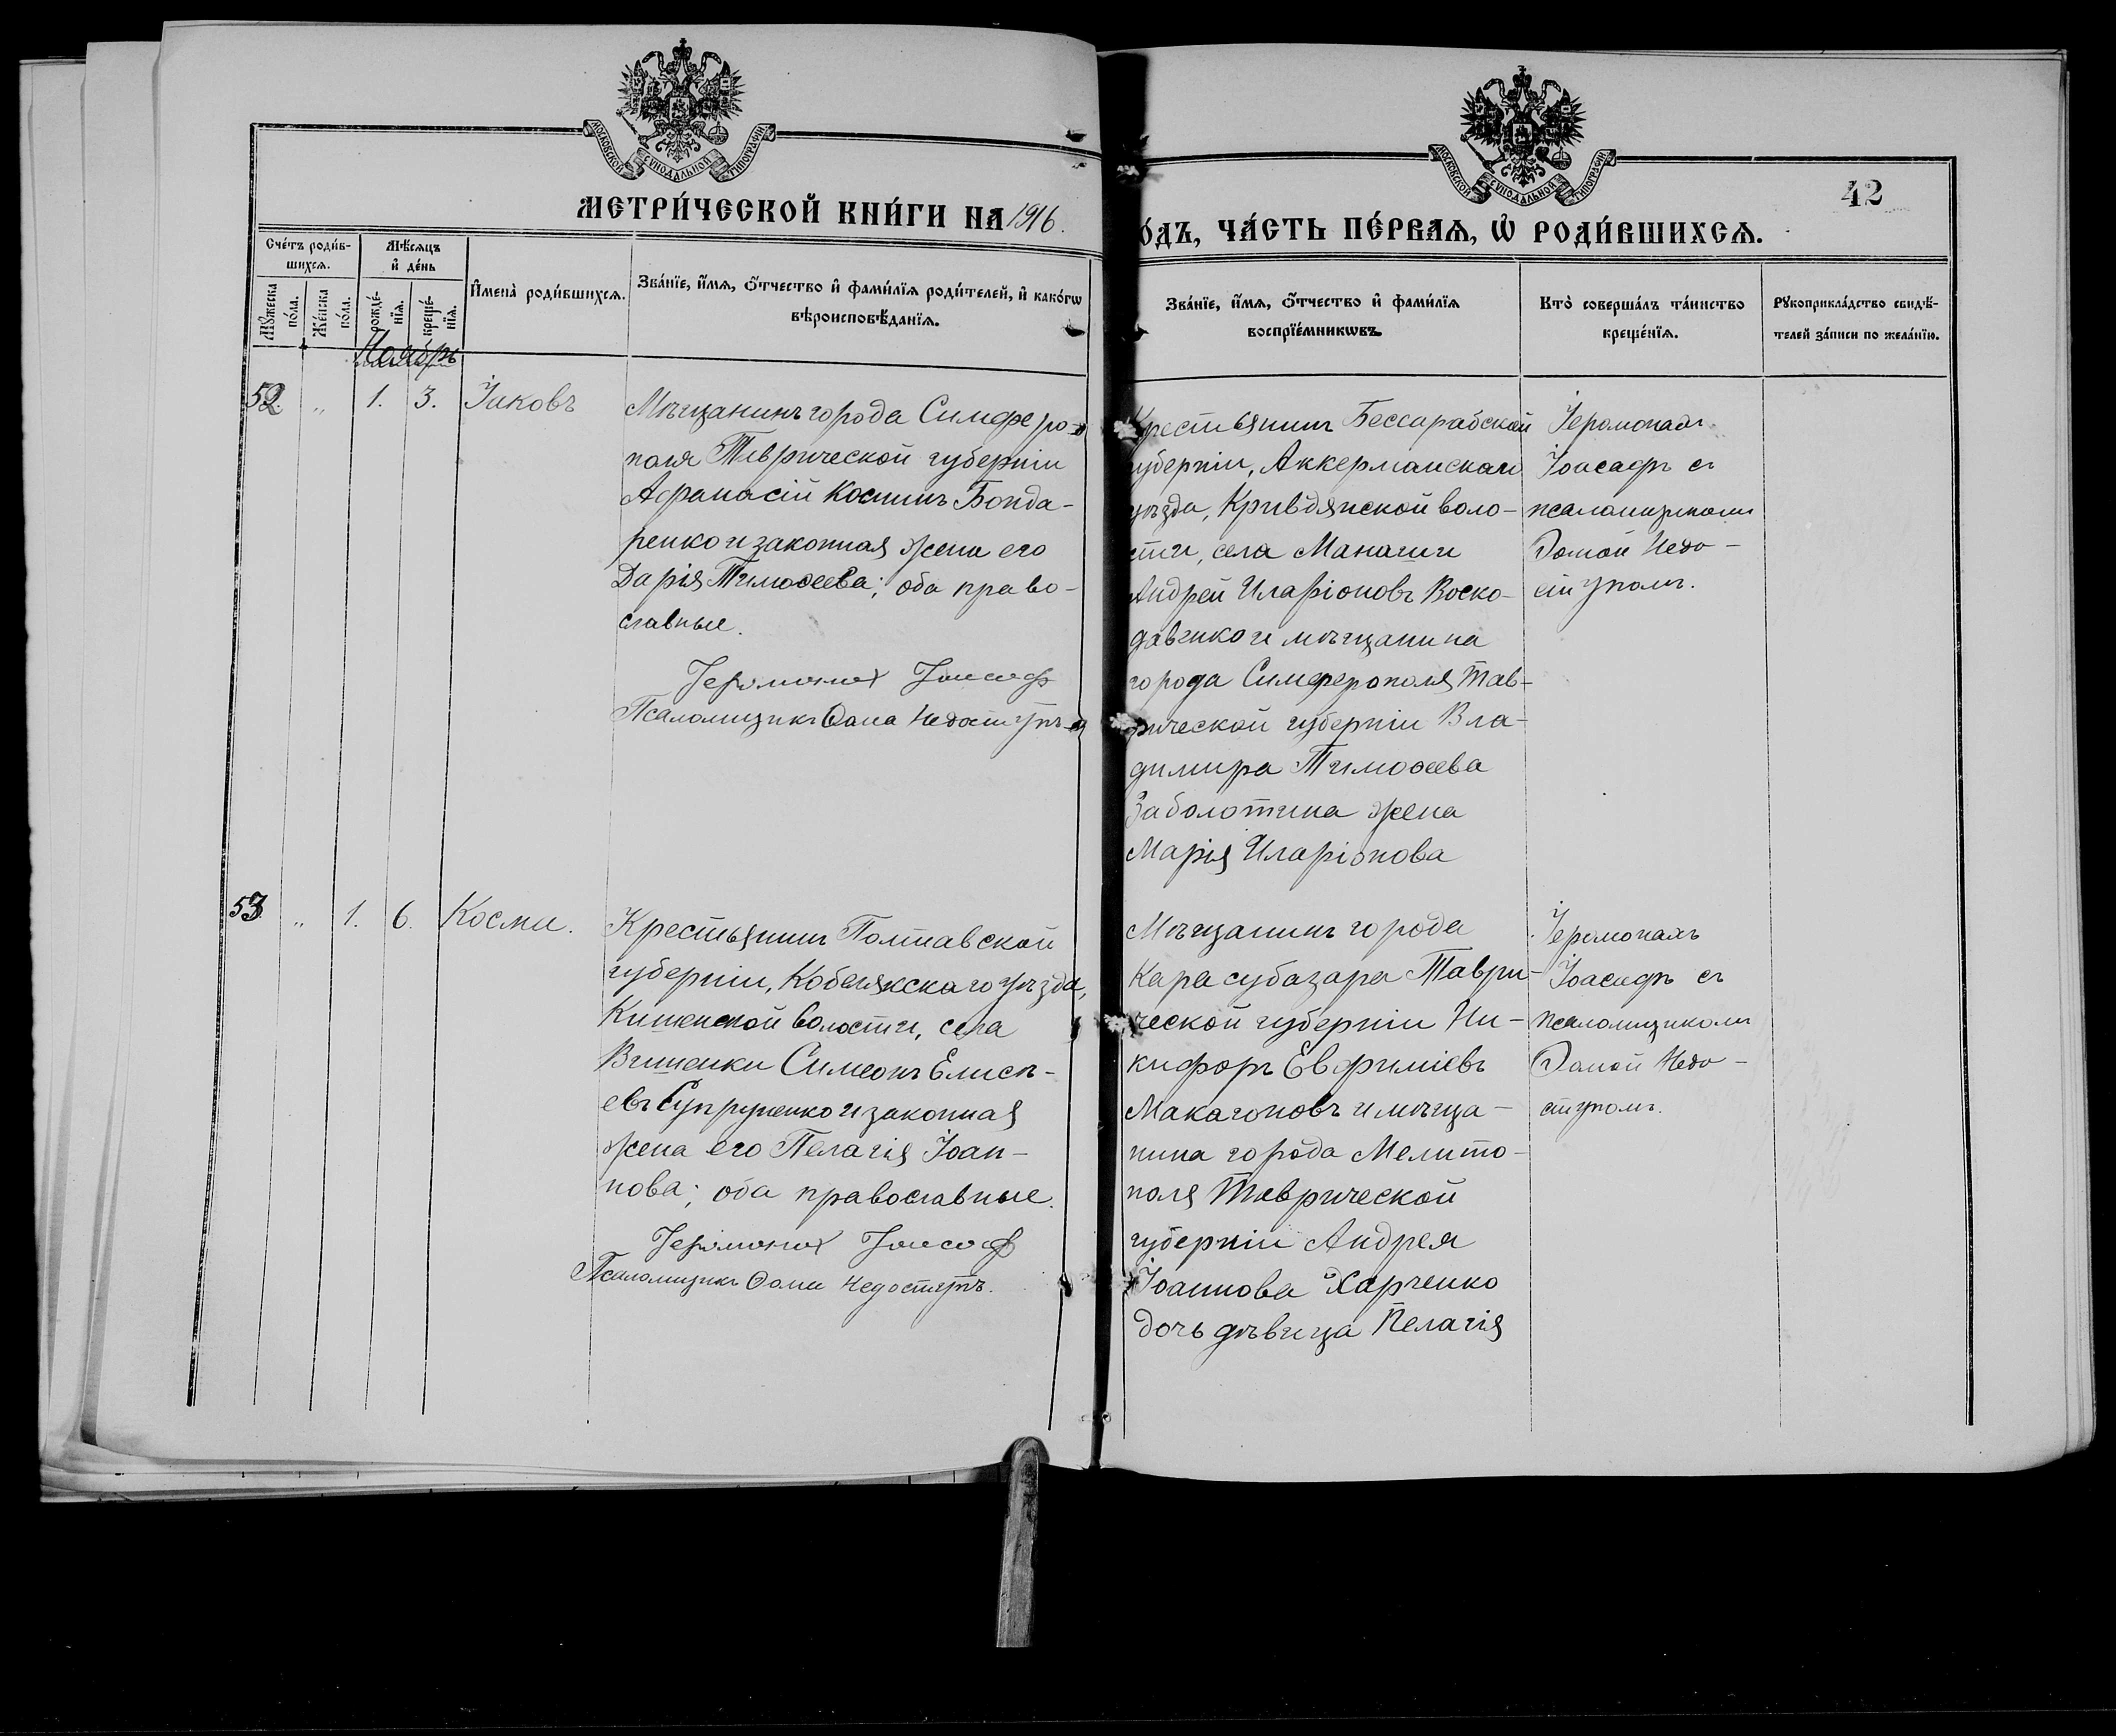 МОСКОВСКОЙ СѴНОДАЛЬНОЙ ТИПОГРАФІИ
МОСКОВСКОЙ СѴНОДАЛЬНОЙ ТИПОГРАФІИ
42
МЕТРИ́ЧЕСКОЙ КНИ́ГИ НА 1916.
О́ДЪ, ЧА́СТЬ ПЕ́РВАѦ, Ѡ҆ РОДИ́ВШИХСѦ.
Сче́тъ роди́в-
шихсѧ.
Мꙋ́жеска
по́ла.
Же́нска
по́ла.
Мѣ́сѧцъ
и҆ де́нь
рожде́-
нїѧ.
креще́-
нїѧ.
И҆мена̀ роди́вшихсѧ.
Зва́нїе, и҆́мѧ, ѻ҆́тчество и҆ фами́лїѧ роди́телей, и҆ како́гѡ
вѣроисповѣ́данїѧ.
Зва́нїе, и҆́мѧ, ѻ҆́тчество и҆ фами́лїѧ
воспрїе́мникѡвъ
Кто̀ соверша́лъ та́инство
креще́нїѧ.
Рꙋкоприкла́дство свидѣ́-
телей за́писи по жела́нїю.
Ноябрь
52. „ 1. 3. Іаковъ
Мѣщанинъ города Симферо-
поля Таврической губерніи
Афанасій Космин Бонда-
ренко и законная жена его
Дарія Тимоѳеева; оба право-
славные.
Іеромонах Іоасаф
Псаломщикъ Ѳома Недоступъ
Крестьянин Бессарабской
губерніи, Аккерманскаго
уѣзда, волο-
сти, села
Андрей Иларіоновъ Воско-
и мѣщанина
города Симферополя Тав-
рической губерніи Вла-
димира Тимоѳеева
Заболотина жена
Марія Иларіонова
Іеромонахъ
Іоасафъ съ
псаломщикомъ
Ѳомой Недо-
ступомъ.
53 „ 1. 6. Косма.
Крестьянин Полтавской
губерніи, Кобелякскаго уѣзда,
Кишенской волости, села
Вишенки Симеонъ Елисѣ-
евъ Супруненко и законная
жена его Пелагія Іоан-
нова; оба православные.
Іеромонах Іоасаф
Псаломщикъ Ѳома Недоступъ.
Мѣщанинъ города
Карасубазара Таври-
ческой губерніи Ни-
кифоръ Евфиміевъ
Макагоновъ и мѣща-
нина города Мелито-
поля Таврической
губерніи Андрея
Іоаннова Харченко
дочь дѣвица Пелагія
Іеромонахъ
Іоасафъ съ
псаломщикомъ
Ѳомой Недо-
ступомъ.